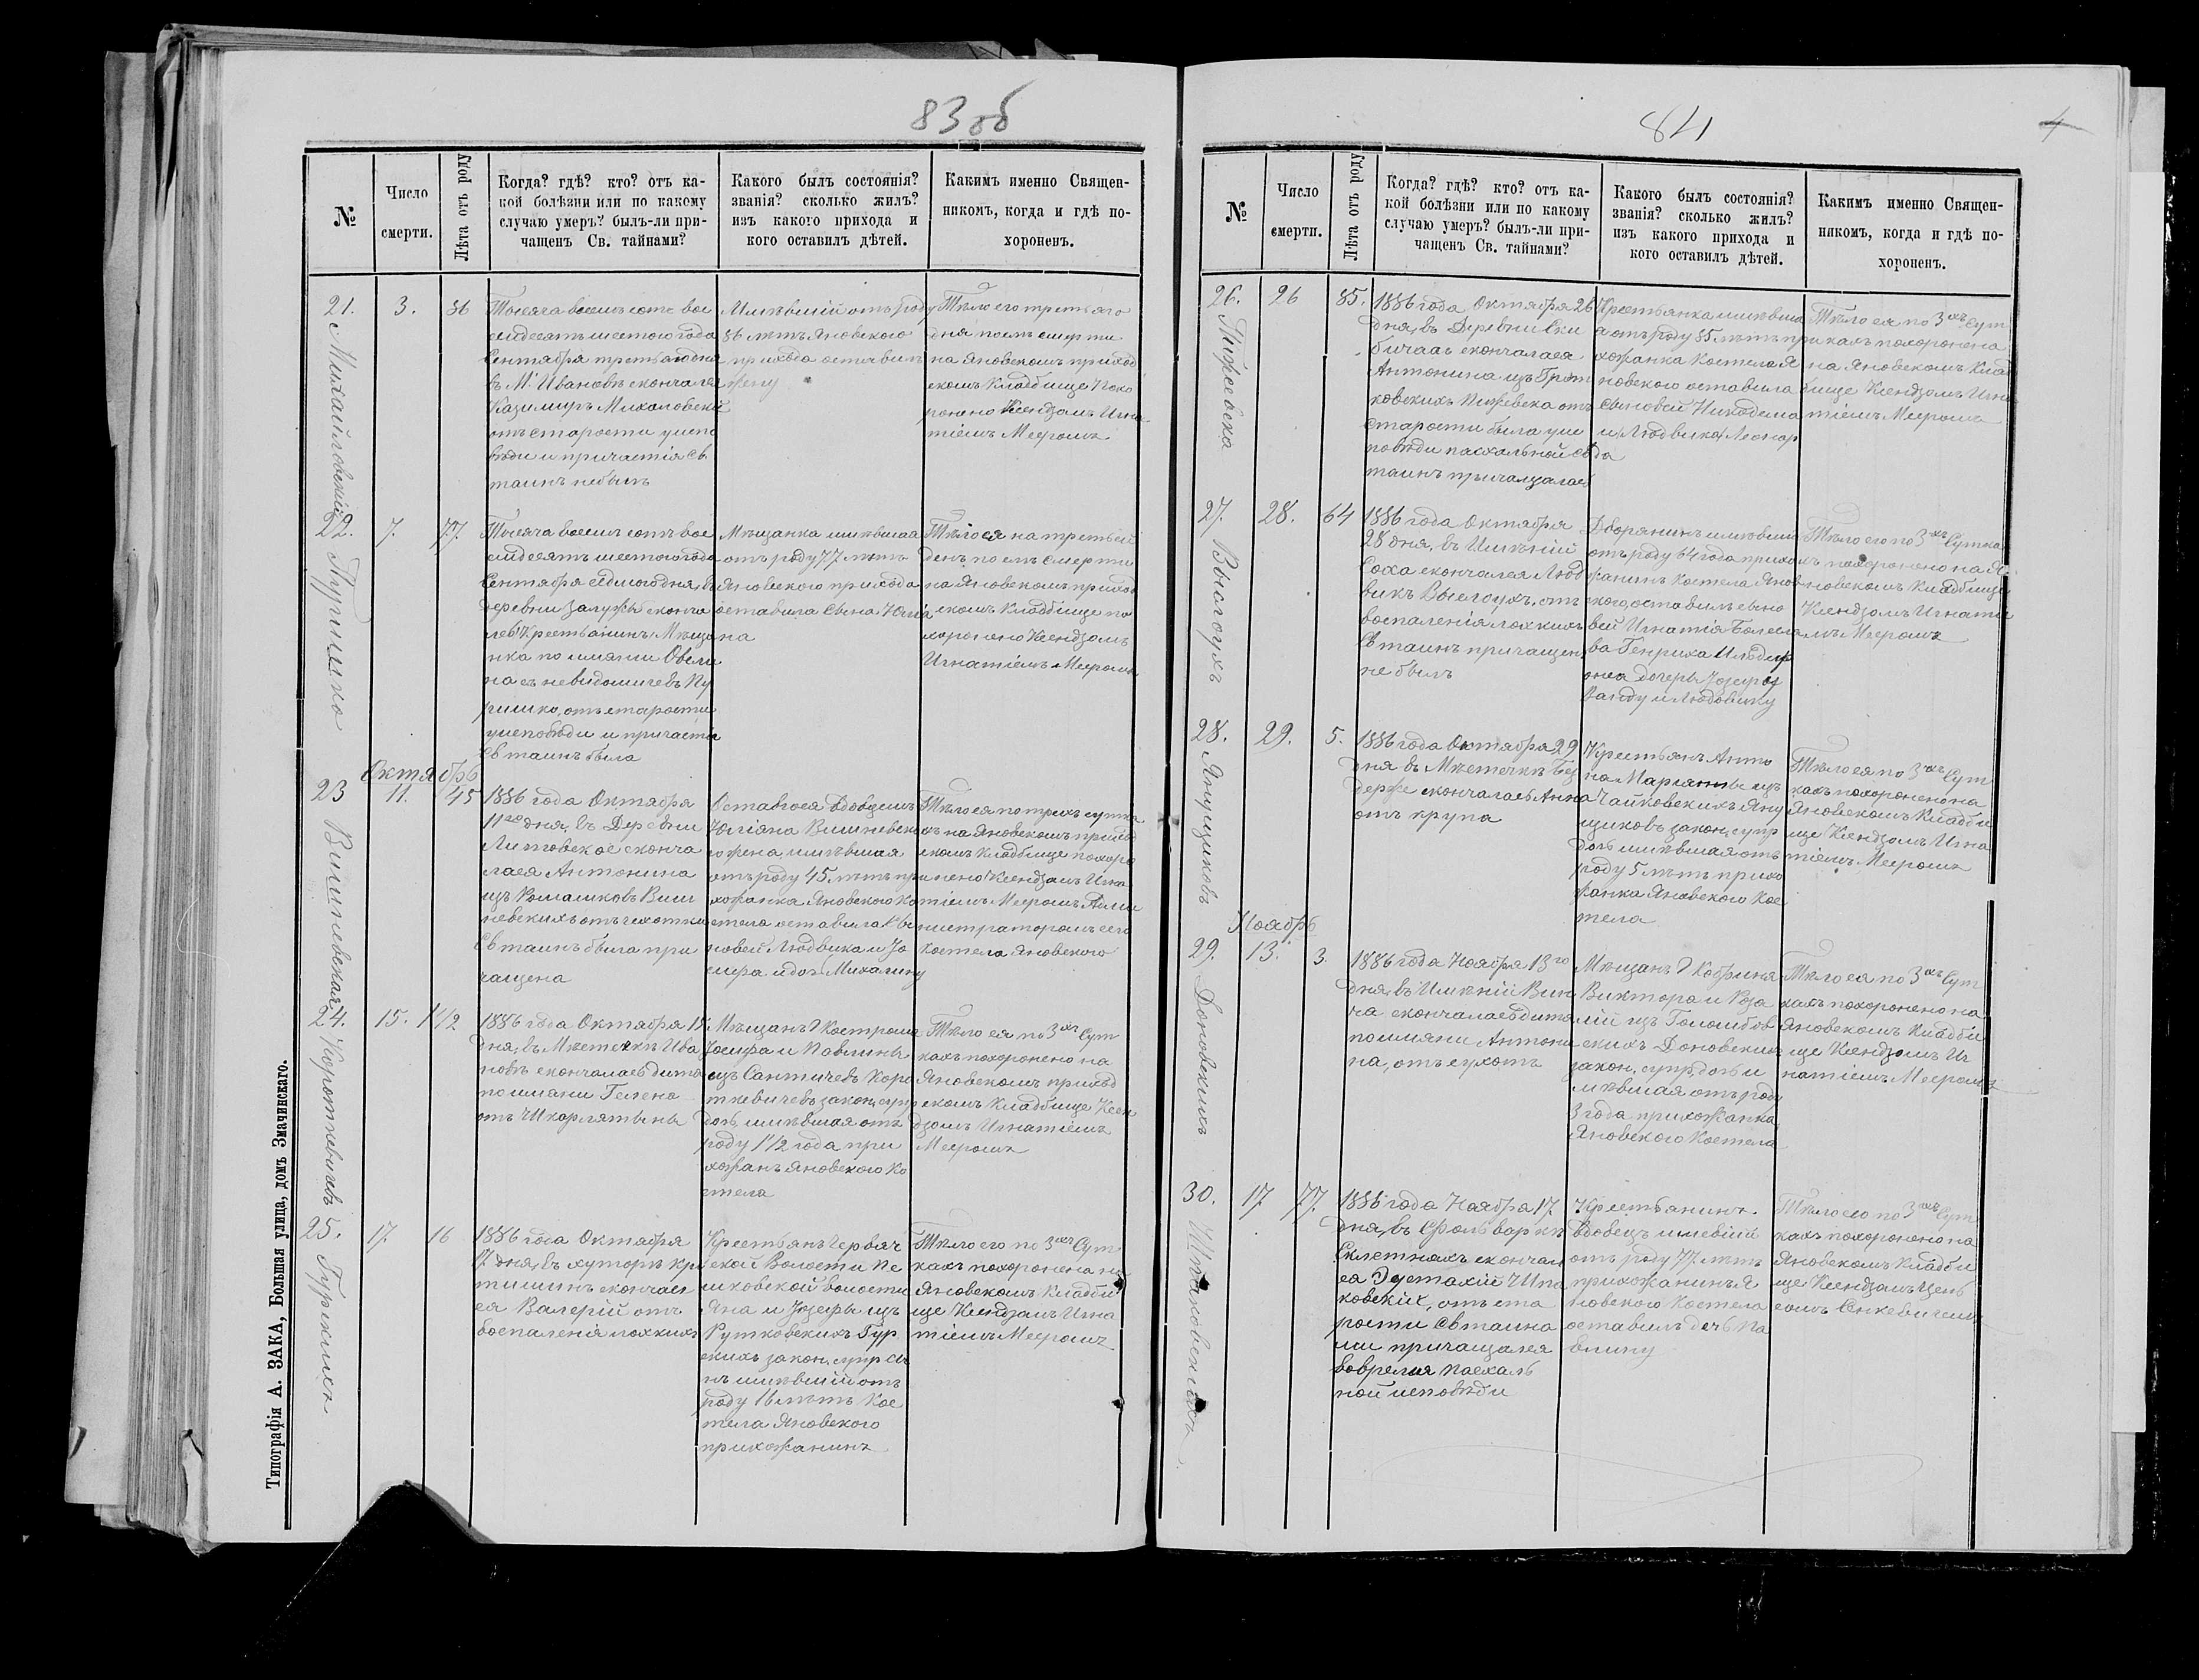 83 об
№
Число
смерти.
Лѣта отъ роду
Когда? гдѣ? кто? отъ ка-
кой болѣзни или по какому
случаю умеръ? былъ-ли при-
чащенъ Св. тайнами?
Какого былъ состоянія?
званія? сколько жилъ?
изъ какого прихода и
кого оставилъ дѣтей.
Какимъ именно Священ-
никомъ, когда и гдѣ по-
хороненъ.
21.
Михайловскій
3.
Тысяча восемь сотъ вос
емдесятъ шестого года
Сентября третьяго дня
въ М. Ивановѣ скончался
Казимиръ Михаловскій
отъ старости у испо
вѣди и причастія Св
таинъ не былъ
Имѣвшій отъ роду
86 лѣтъ Яновского
прихода оставилъ
жену
Тѣло его третьяго
дня послѣ смерти
на Яновскомъ приход
скомъ Кладбище похо
ронено Ксендзомъ Игна
тіемъ Мееромъ
22.
Пуришко
7.
77.
Тысяча восемь сотъ вос
емдесятъ шестого года
Сентября седмого дня, въ
деревни Залужьи сконча
лась Крестьянинъ Мѣща
нка по имяни
на съ невидомичевъ Пу
ришко, отъ старости
у исповѣди и причастія
Св таинъ была
Мѣщанка имѣвшая
отъ роду 77 лѣтъ
Яновского прихода
оставила сына Юліа
на
Тѣло ея на третьей
день послѣ смерти
на Яновскомъ приход
скомъ Кладбище по
хоронено Ксендзомъ
Игнатіемъ Мееромъ
Октябрь
23
Вишневская
11.
45
1886 года Октября
11го дня, въ Деревни
Литовское сконча
лася Антонина
изъ Ромашковъ Виш
невскихъ отъ чехотки
Св таинъ была при
чащена
Оставшося вдовцемъ
Юліяна Вишневско
го жена, имѣвшая
отъ роду 45 лѣтъ при
хожанка Яновского Ко
стела оставила сы
новей Людвика и Іо
сифа и доч. Михалину
Тѣло ея по трехъ сутка
хъ на Яновскомъ приход
скомъ кладбище похоро
нено Ксендзомъ Игна
тіемъ Мееромъ Адми
нистраторомъ сего
Костела Яновского
24.
Короткевичъ
15.
1 1/2
1886 года Октября 15
дня, въ Мѣстечкѣ Ива
новѣ скончалась дитя
по имяни Гелена
отъ Шкарлятыны
Мѣщанъ Г Костроша
Іосифа и Павлины
изъ Сантичевъ Коро
ткевичевъ закон. супр
дочь, имѣвшая отъ
роду 1 1/2 года при
хожанъ Яновского Ко
стела
Тѣло ея по 3хъ Сут
кахъ похоронено на
Яновскомъ приход
скомъ Кладбище Ксен
дзомъ Игнатіемъ
Мееромъ
25.
Гурскихъ
17.
16
1886 года Октября
17 дня, въ хуторѣ Кри
тишинъ скончал
ся Валерій отъ
воспаленія лохкихъ
Крестьянъ Червач
ской Волости Пе
шковской волости
Яна и Іозефы изъ
Рутковскихъ Гур
скихъ закон. супр сы
нъ имѣвшій отъ
роду 16 лѣтъ Кос
тела Яновского
прихожанинъ
Тѣло его по 3хъ Сут
кахъ похоронена на
Яновскомъ Кладби
ще Ксендзомъ Игна
тіемъ Мееромъ
Типографія А. ЗАКА, Большая улица, домъ Змачинскаго.
841
4
№
Число
смерти.
Лѣта отъ роду
Когда? гдѣ? кто? отъ ка-
кой болѣзни или по какому
случаю умеръ? былъ-ли при-
чащенъ Св. тайнами?
Какого былъ состоянія?
званія? сколько жилъ?
изъ какого прихода и
кого оставилъ дѣтей.
Какимъ именно Священ-
никомъ, когда и гдѣ по-
хороненъ.
26.
Пижевска
26
85.
1886 года Октября 26
дня, въ Деревни Ски
бичахъ скончалася
Антонина изъ Грот
ковскихъ Пижевска отъ
старости была у ис
повѣди пасхальной Св
таинъ причащалась
Крестьянка имѣвша
я отъ роду 85 лѣтъ при
хожанка Костела Я
новского оставила
сыновей Никодима
и Людвика Леонар
да
Тѣло ея по 3хъ Сут
кахъ похоронена
на Яновскомъ Клад
бище Ксендзомъ Игна
тіемъ Мееромъ
27.
Вислоухъ
28.
64
1886 года Октября
28 дня, въ Имѣній
Соха скончался Люд
викъ Вислоухъ. отъ
воспаленія лохкихъ
Св таинъ причащен
не былъ
Дворянинъ имѣвши
отъ роду 64 года прихо
жанинъ Костела Янов
ского, оставилъ сыно
вей Игнатія Болесла
ва Генриха
дочерь Іозефу
Ванду и Людовику
Тѣло его по 3хъ Сутка
хъ похоронено на Я
новскомъ Кладбище
Ксендзомъ Игнати
емъ Мееромъ
28.
Янущиковъ
29.
5.
1886 года Октября 29
дня въ Мѣстечкѣ Без
держе скончалась Анна
отъ крупа
Крестьянъ Анто
на Марянны изъ
Чайковскихъ Яну
щиковъ закон. супр
дочь имѣвшая отъ
роду 5 лѣтъ прихо
жанка Яновского Кос
тела
Тѣло ея по 3хъ Сут
кахъ похоронено на
Яновскомъ Кладби
ще Ксендзомъ Игна
тіемъ Мееромъ
Ноябрь
29.
Доновскихъ
13.
3.
1886 года Ноября 13го
дня, въ Имѣній Вин
ча скончалась дитя
по имяни Антони
на, отъ сухотъ
Мѣщанъ Г Кобрина
Виктора и Роза
лій изъ Голомбов
скихъ Доновскихъ
закон. супр. дочь и
мѣвшая отъ роду
3 года прихожанка
Яновского Костела
Тѣло ея по 3хъ Сут
кахъ похоронено на
Яновскомъ Кладби
ще Ксендзомъ Иг
натіемъ Мееромъ
30.
Шпаковскихъ
17
77.
1886 года Ноября 17.
дня, въ Фольваркѣ
скончал
ся Эустахій Шпа
ковскій, отъ ста
рости Св таина
ми причащался
во время пасхаль
ной исповѣди
Крестьянинъ.
вдовецъ имевшій
отъ роду 77. лѣтъ
прихожанинъ Я
новского Костела
оставилъ дочь Па
влину
Тѣло его по 3хъ Сут
кахъ похоронено на
Яновскомъ Кладби
ще Ксендзомъ Цель
сомъ Сенкевичемъ